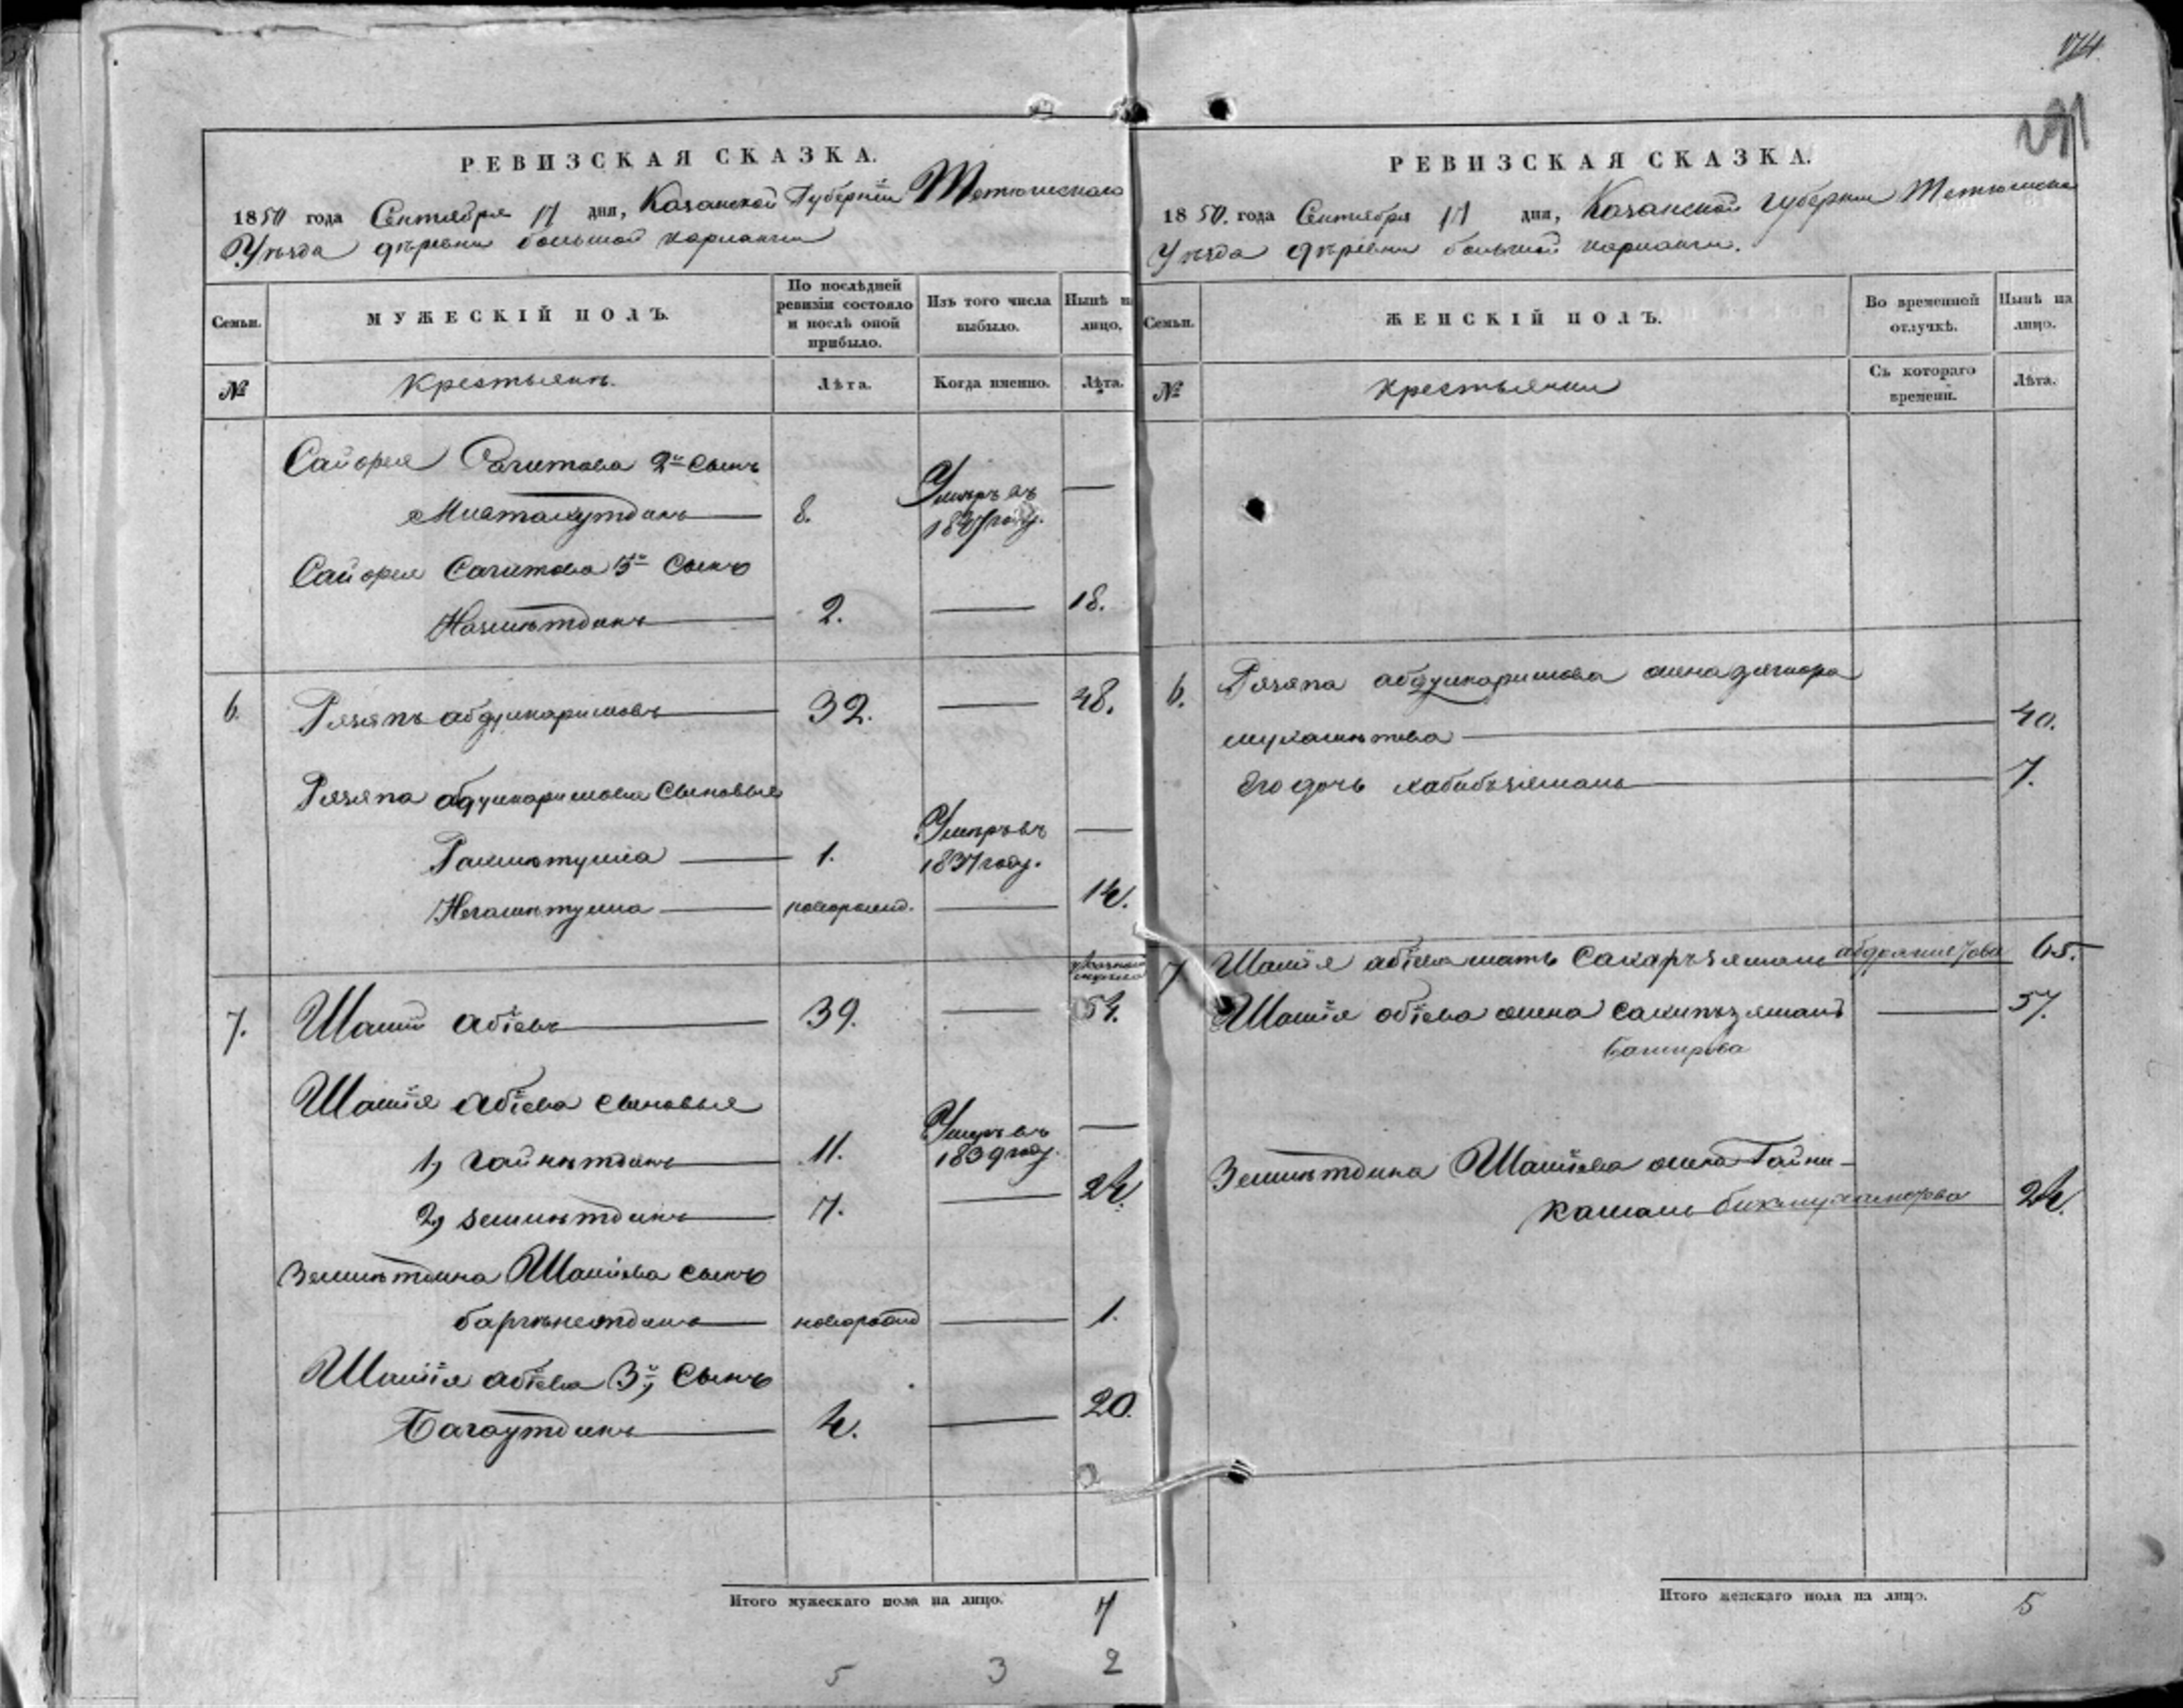 174.
291
РЕВИЗСКАЯ СКАЗКА.
1850 года Сентября 17 дня, Казанской Губерніи Тетюшскаго
Уѣзда дѣревни большой
Семьи.
МУЖЕСКІЙ ПОЛЪ.
По послѣдней ревизіи состояло и послѣ оной прибыло.
Изъ того числа выбыло.
Нынѣ на лицо.
№
Крестьянъ.
Лѣта.
Когда именно.
Лѣта.
Сайфуля Сагитова 2й сынъ
Мифтахутдинъ 8. Умеръ въ —
1837 году.
Сайфуля Сагитова 3й Сынъ
Назмѣтдинъ 2. — 18.
6. Рязяпъ абдулкаримовъ 32. — 48.
Рязяпа абдулкаримова сыновья
Рахмѣтулла 1. Умеръ въ —
1837 году.
Негаметулла новорожд. — 14.
7. Шамій абіевъ 39. — 54.
Шамія абіева сыновья
1, гайнѣтдинъ 11. Умеръ въ —
1839 году.
2, земинѣтдинъ 7. — 24
Земинѣтдина Шаміева сынъ
новорожд — 1.
Шамія абіева 3й, сынъ
Багаутдинъ 4. — 20.
Итого мужескаго пола на лицо. 7
5 3 2
РЕВИЗСКАЯ СКАЗКА.
1850. года Сентября 17 дня, Казанской Губерніи Тетюшска
Уѣзда дѣревни большой
Семьи.
ЖЕНСКІЙ ПОЛЪ.
Во временной отлучкѣ.
Нынѣ на лицо.
№
крестьянки
Съ котораго времени.
Лѣта.
6. Рязяпа абдулкаримова жена
мухаметева 40.
Его дочь хабибъзямалъ 7.
7 Шамія абіева мать Сахаръзямалъ 65.
Шамія абіева жена сахипъзямалъ — 57.
Баширова
Земинѣтдина Шаміева жена Гайни-
камалъ 24.
Итого женскаго пола на лицо. 5